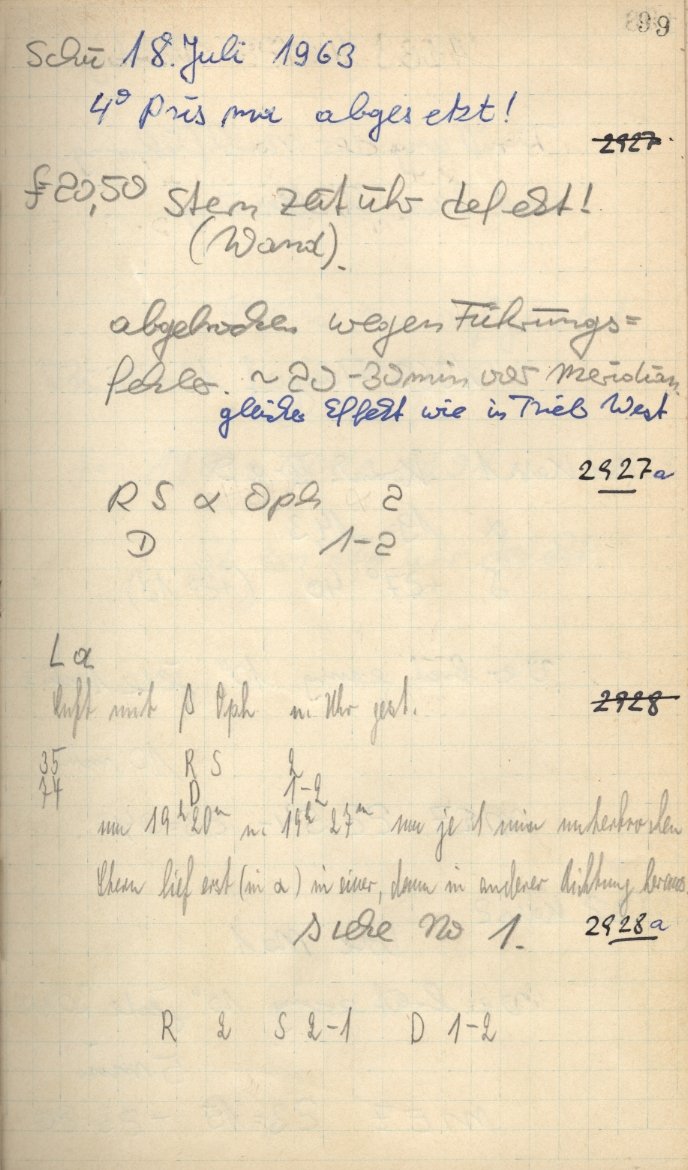 99
Schü 18. Juli 1963
4° Prisma abgesetzt!
2927
20,50 Sternzeituhr defekt!
(Wand).
abgebrochen wegen Führungs=
fehler. ~20-30min vor Meridian
gleicher Effekt wie in Trieb West
2927a
R S α Oph 2
D 1-2
Lα
Luft mit β Oph n. Uhr gest.
2928
35 R S 2
74 D 1-2
um 19h20m u. 19h27m um je 1 min unterbrochen
Stern lief erst (in α) in einer, dann in anderer Richtung heraus.
siehe No 1.
2928a
R 2 S 2-1 D 1-2